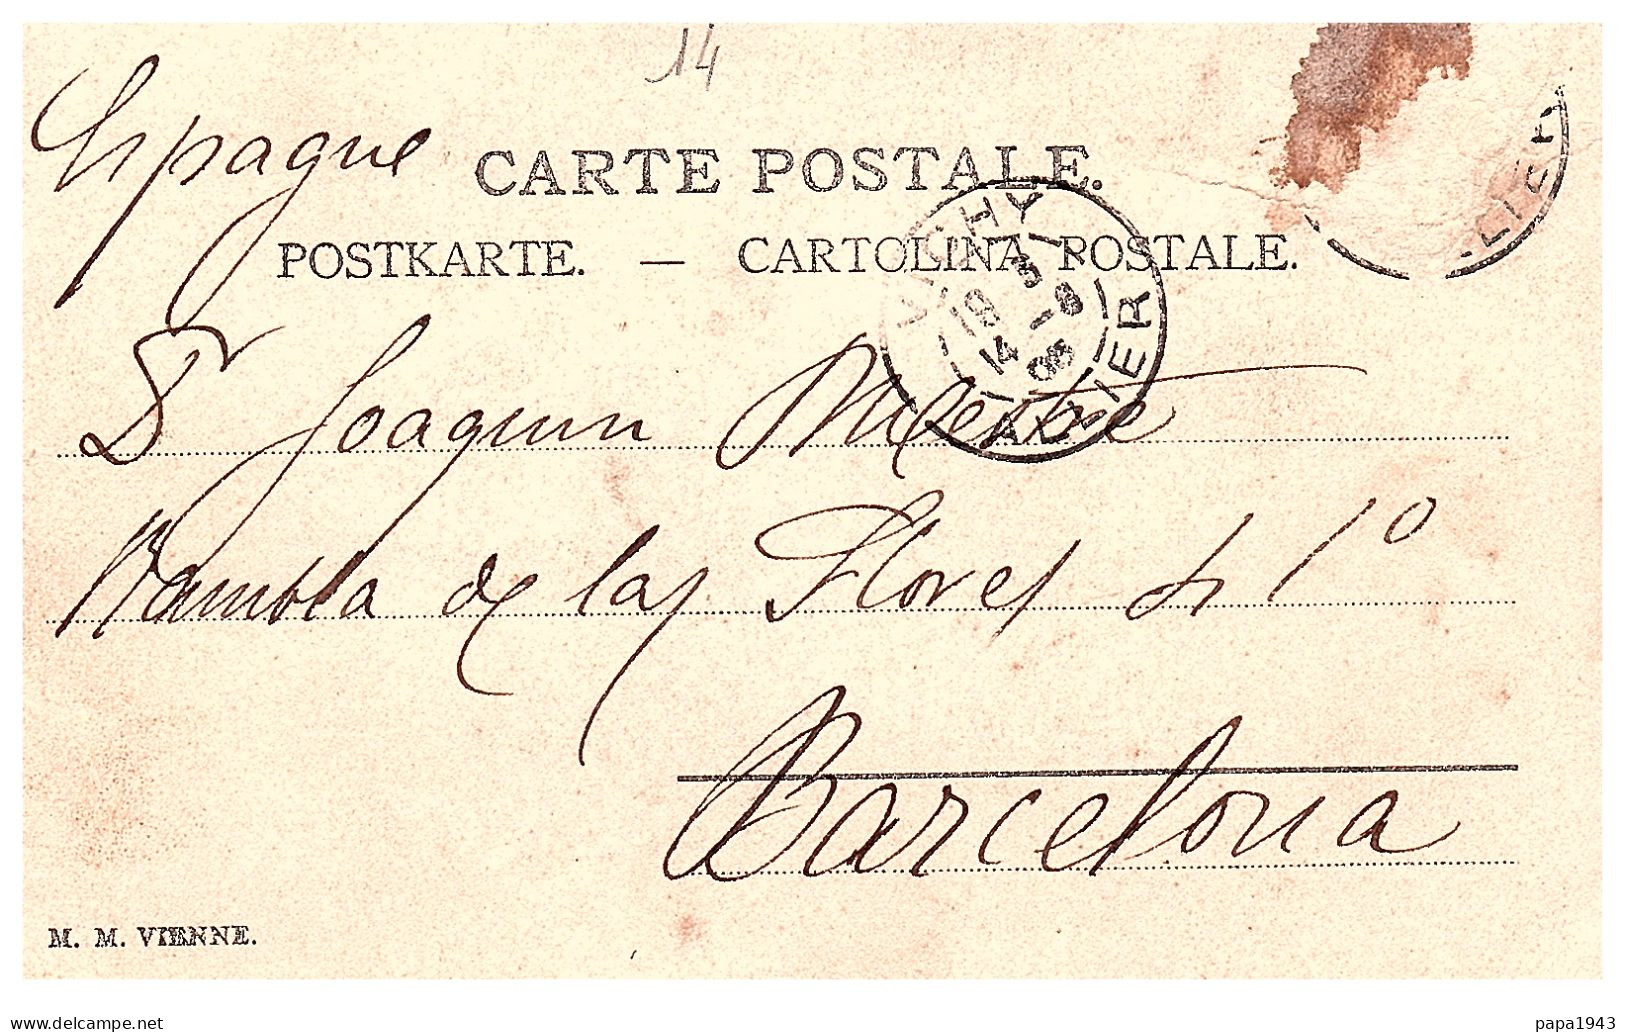 14
Espagne
CARTE POSTALE.
POSTKARTE. — CARTOLINA POSTALE.
VICHY
18 3
14 -8
05
ALLIER
ALLIER
Dr Joaquin Mestre
Rambla de las Flores 1º
Barcelona
M. M. VIENNE.
delcampe.net
papa1943